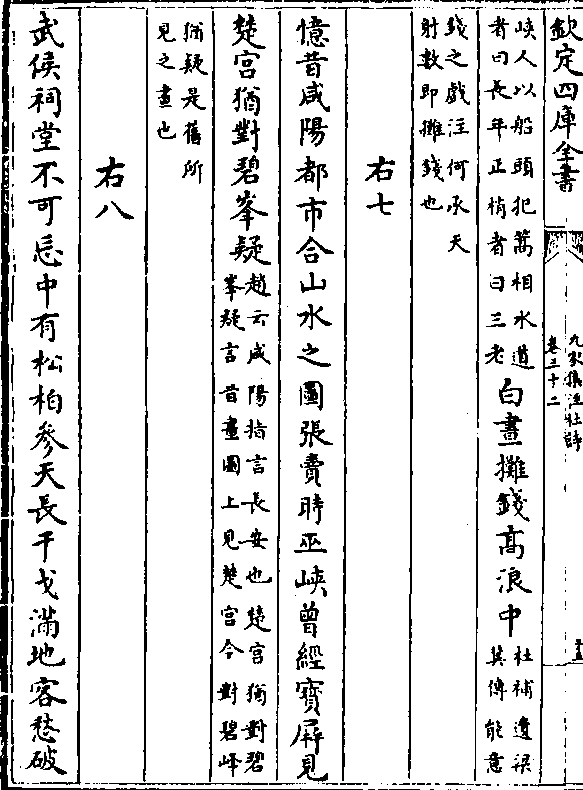 欽定四庫全書
九家集注杜詩
卷三十二
峽人以船頭把篙相水道
者曰長年正梢者曰三老
白晝攤錢高浪中
杜補遺梁
冀傳能意
錢之戲注何承天
射數即攤錢也
右七
憶昔咸陽都市合山水之圖張賣時巫峽曾經寶屏見
楚宮猶對碧峯疑
趙云咸陽指言長安也楚宮猶對碧
峯疑言昔畫圖上見楚宮今對碧峰
猶疑是舊所
見之畫也
右八
武侯祠堂不可忘中有松柏參天長干戈滿地客愁破